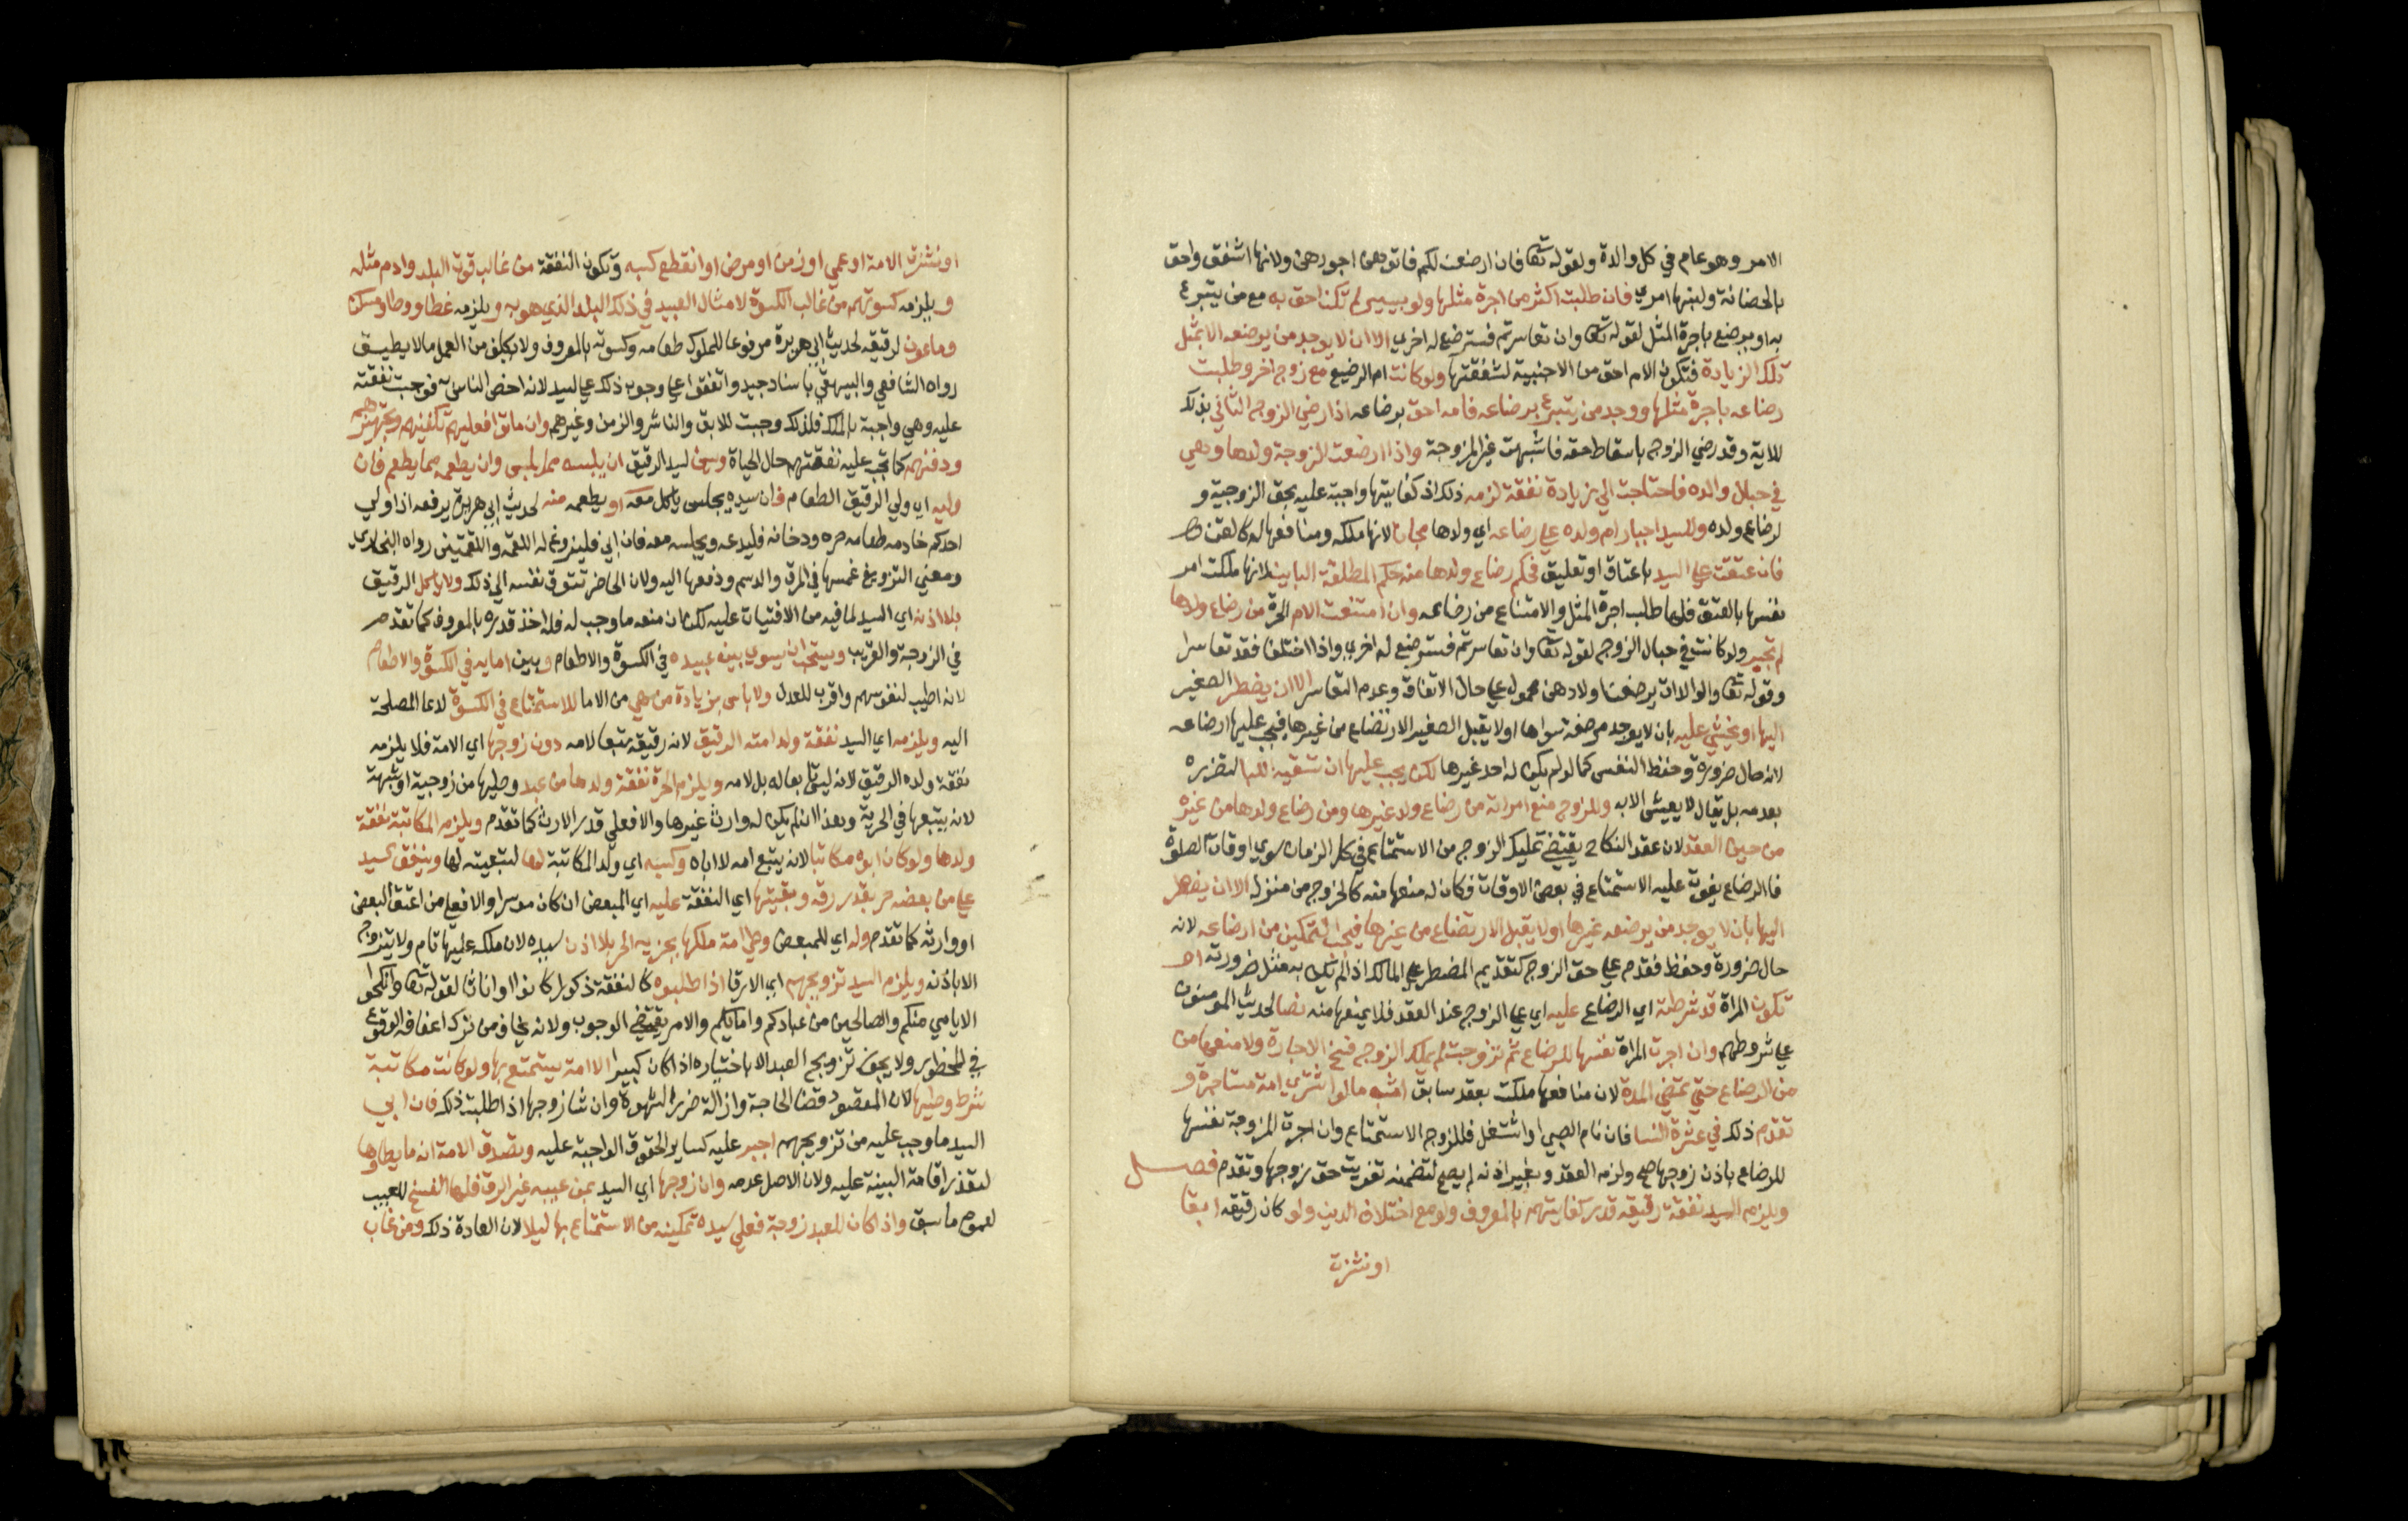 الامر وهو عام في كل والدة ولقوله تعا فان ارضعن لكم فاتوهن اجورهن ولانها اشفق واحق
بالحضانة ولبنها امري فان طلبت اكثر من اجرة مثلها ولو بيسير لم تكن احق به مع من يتبرع
به او يرضع باجرة المثل لقوله تعا وان تعاسرتم فسترضع له اخري الا ان لا يوجد من يرضعه الا بمثل
تلك الزيادة فتكون الام احق من الاجنبية لشفقتها ولو كانت ام الرضيع مع زوج اخر وطلبت
رضاعه باجرة مثلها ووجد من يتبرع برضاعه فامه احق برضاعه اذا رضي الزوج الثاني بذلك
للاية وقد رضي الزوج باسقاط حقه فاشبهت غير المزوجة واذا ارضعت الزوجة ولدها وهي
في حبال والده فاحتاجت الي زيادة نفقة لزمه ذلك اذ كفايتها واجبة عليه بحق الزوجية و
لرضاع ولده وللسيد اجبار ام ولده علي رضاعه اي ولدها مجانا لانها ملكه ومنافعها له كالقن
فان عتقت علي السيد باعتاق او تعليق فحكم رضاع ولدها منه حكم المطلقة الباين لانها ملكت امر
نفسها بالعتق فلها طلب اجرة المثل والامتناع من رضاعه وان امتنعت الام الحرة من رضاع ولدها
لم تجبر ولو كانت في حبال الزوج لقوله تعا وان تعاسرتم فسترضع له اخري واذا اختلفا فقد تعاسرا
وقوله تعا والوالدات يرضعن اولادهن محمول علي حال الاتفاق وعدم التعاسر الا ان يضطر الصغير
اليها او يخشي عليه بان لا يوجد مرضعة سواها او لا يقبل الصغير الارتضاع من غيرها فيجب عليها ارضاعه
لانه حال ضرورة وحفظ النفس كما لو لم يكن له احد غيرها لكن يجب عليها ان تسقيه اللبا لتضرره
بعدمه بل يقال لا يعيش الا به وللزوج منع امراته من رضاع ولد غيرها ومن رضاع ولدها من غيره
من حين العقد لان عقد النكاح يقتضي تمليك الزوج من الاستمتاع في كل الزمان سوي اوقات الصلوة
فالرضاع يفوت عليه الاستمتاع في بعض الاوقات فكان له منعها منه كالخروج من منزله الا ان يضطر
اليها بان لا يوجد من يرضعه غيرها او لا يقبل الارتضاع من غيرها فيجب التمكين من ارضاعه لانه
حال ضرورة وحفظ فقدم علي حق الزوج كتقديم المضطر علي المالك اذا لم يكن به مثل ضرورته او
تكون المراة قد شرطته اي الرضاع عليه اي علي الزوج عند العقد فلا يمنعها منه نصا لحديث المومنون
علي شروطهم وان اجرت المراة نفسها للرضاع ثم تزوجت لم يملك الزوج فسخ الاجارة ولا منعها من
من الرضاع حتي تمضي المدة لان منافعها ملكت بعقد سابق اشبه ما لو اشتري امة مستاجرة و
تقدم ذلك في عشرة النسا فان نام الصبي او اشتغل فللزوج الاستمتاع وان اجرت المزوجة نفسها
للرضاع باذن زوجها صح ولزمه العقد وبغير اذنه لم يصح لتضمنه تفويت حق زوجها وتقدم فصل
ويلزم السيد نفقة رقيقه قدر كفايتهم بالمعروف ولو مع اختلاف الدين ولو كان رقيقه ابقا
او نشزت
او نشزت الامة او عمي او زمن او مرض او انقطع كسبه وتكون النفقة من غالب قوت البلد وادم مثله
ويلزمه كسوتهم من غالب الكسوة لامثال العبيد في ذلك البلد الذي هو به ويلزمه غطا ووطا ومسكن
وماعون لرقيقه لحديث ابي هريرة مرفوعا للمملوك طعامه وكسوته بالمعروف ولا يكلف من العمل ما لا يطيق
رواه الشافعي والبيهقي باسناد جيد واتفقوا علي وجوب ذلك علي السيد لانه اخص الناس به فوجبت نفقته
عليه وهي واجبة بالملك فلذلك وجبت للابق والناشز والزمن وغيرهم وان ماتوا فعليهم تكفينهم وتجهيزهم
ودفنهم كما تجب عليه نفقتهم حال الحياة وسن لسيد الرقيق ان يلبسه مما يلبس وان يطعمه مما يطعم فان
وليه اي ولي الرقيق الطعام فان سيده يجلس ياكل معه او يطعمه منه لحديث ابي هريرة يرفعه اذا ولي
احدكم خادمه طعامه حره ودخانه فليدعه ويجلسه معه فان ابي فليزوغ له اللقمة واللقمتين رواه البخاري
ومعني الترويغ غمسها في المرق والدسم ودفعها اليه ولان الحاضر تتوق نفسه الي ذلك ولا ياكل الرقيق
بلا اذنه اي السيد لما فيه من الافتيات عليه لكن ان منعه ما وجب له فله اخذ قدره بالمعروف كما تقدم
في الزوجة والقريب ويستحب ان يسوي بين عبيده في الكسوة والاطعام وبين امايه في الكسوة والاطعام
لانه اطيب لنفوسهم واقرب للعدل ولا باس بزيادة من هي من الاما للاستمتاع في الكسوة لدعا المصلحة
اليه ويلزمه اي السيد نفقة ولد امته الرقيق لانه رقيقه تبعا لامه دون زوجها اي الامة فلا يلزمه
نفقة ولده الرقيق لانه ليس تابعا له بل لامه ويلزم الحرة نفقة ولدها من عبد وطيها من زوجية او شبهة
لانه يتبعها في الحرية وهذا ان لم يكن له وارث غيرها والا فعلي قدر الارث كما تقدم ويلزم المكاتبة نفقة
ولدها ولو كان ابوه مكاتبا لانه يتبع امه لا اباه وكسبه اي ولد المكاتبة لها لتبعيته لها وينفق سيد
علي من بعضه حر بقدر رقه وبقيتها اي النفقة عليه اي المبعض ان كان موسرا والا فعلي من اعتق البعض
او وارثه كما تقدم وله اي للمبعض وطي امة ملكها بجزيه الحر بلا اذن سيده لان ملكه عليها تام ولا يتزوج
الا باذنه ويلزم السيد تزويجهم اي الارقا اذا طلبوه كالنفقة ذكورا كانوا او اناثا لقوله تعا وانكحوا
الايامي منكم والصالحين من عبادكم وامايكم والامر يقتضي الوجوب ولانه يخاف من ترك اعفافه الوقوع
في المحظور ولا يجوز تزويج العبد الا باختياره اذا كان كبيرا الا امة يستمتع بها ولو كانت مكاتبة
شرط وطيها لان المقصود قضا الحاجة وازالة ضرر الشهوة وان شا زوجها اذا طلبت ذلك فان ابي
السيد ما وجب عليه من تزويجهم اجبر عليه كساير الحقوق الواجبة عليه وتصدق الامة انه ما يطاوها
لتعذر اقامة البينة عليه ولان الاصل عدمه وان زوجها اي السيد بمن عيبه غير الرق فلها الفسخ للعيب
لعموم ما سبق واذا كان للعبد زوجة فعلي سيده تمكينه من الاستمتاع بها ليلا لان العادة ذلك ومن غاب